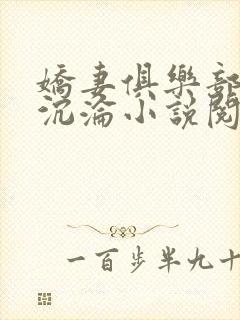 嬌妻俱樂部
沉淪小説閱
一百步半九十